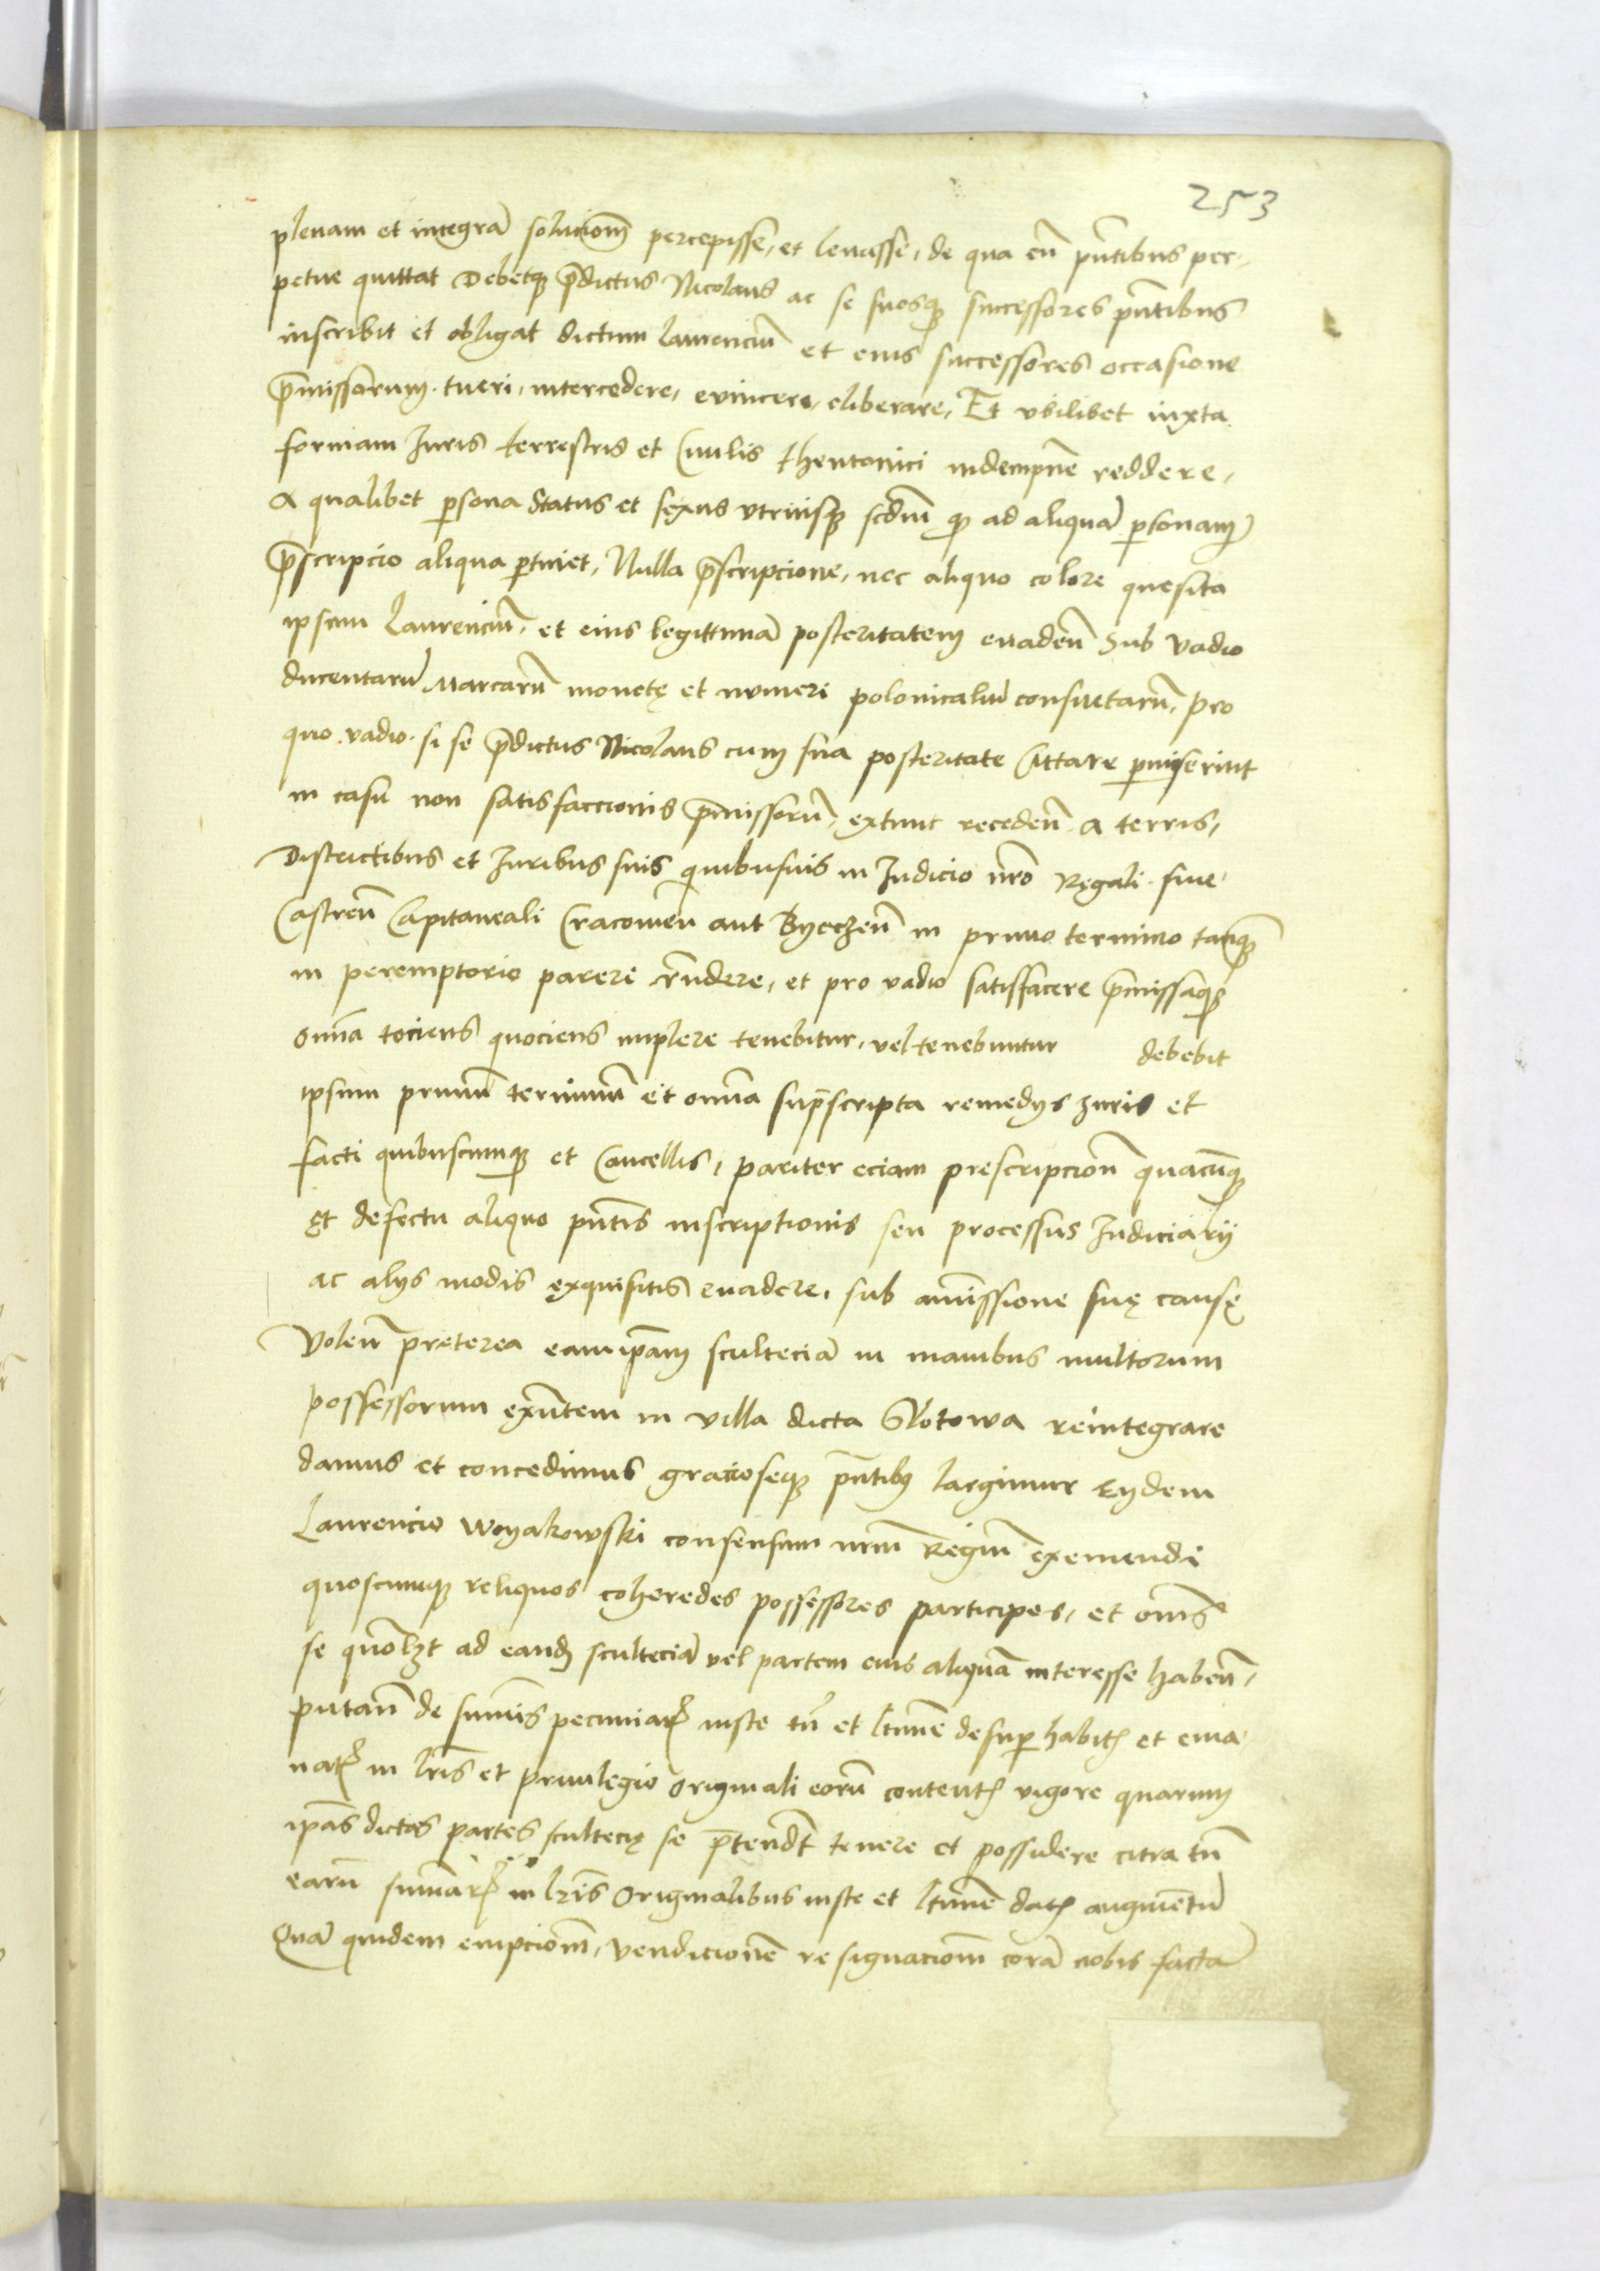 253
plenam et integrã solucionẽ percepisse, et leuasse, de qua eũ pñtibus per-
petue quittat Debetq; p̃dictus Nicolaus ac se suosq; successores pñtibus
inscribit et obligat dictum laurenciũ et eius successores occasione
p̃missorum. tueri, intercedere, evincere, eliberare, Et vbilibet iuxta
formam Juris terrestris et Ciuilis theutonici indempnẽ reddere,
a qualibet psona Status et sexus vtriusq; scdm q; ad aliquã psonam
p̃scripcio aliqua ptinet, Nulla p̃scripcione, nec aliquo colore quesita
ipsum Laurenciũ, et eius legittimã posteritatem euadeñ Sub Vadio
ducentarũ Marcarũ monetę et numeri polonicaliũ consuetarũ, pro
quo vadio. si se p̃dictus Nicolaus cum sua posteritate Cittare pmiserint
in casu non satisfaccionis p̃missorũ, extunc recedeñ a terris,
Districtibus et Juribus suis quibusuis in Judicio nr̃o Regali. siue
Castreñ Capitaneali Cracouieñ aut Byeczeñ in primo termino tanq̃
in peremptorio parere rñdere, et pro vadio satisfacere p̃missaq;
om̃ia tociens quociens implere tenebitur, vel tenebuntur debebit
ipsum primũ terminũ et omnia sup̃scripta remedys Juris et
facti quibuscunq; et Cancellis, pariter eciam prescripcioñ quacũq;
Et defectu aliquo pñtis inscriptionis seu processus Judiciarij
ac alys modis exquisitis euadere, sub amissione suę causę
Voleñ preterea eam ip̃am scultecią in manibus multorum
possessorum exñtem in villa dicta Glotowa reintegrare
damus et concedimus gracioseq; pñtibꝫ largimur Eydem
Laurencio Woyakowski consensum nr̃m Regiũ exemendi
quoscunq; reliquos coheredes possessores participes, et om̃es
se quolꝫt ad eandꝫ scultecią vel partem eius aliquã interesse habeñ,
putañ de sum̃is pecuniarꝫ iuste tñ et ltime desup habitꝫ et ema-
natꝫ in lr̃is et priuilegio originali eorũ contentꝫ vigore quarum
ip̃as dictas partes scultecię se p̃tendt̃ tenere et possidere citra tñ
earũ sum̃arꝫ in lr̃is Originalibus iuste et ltimẽ datꝫ augmentũ
Quã quidem empcionẽ, vendicionẽ resignacionẽ corã nobis factã